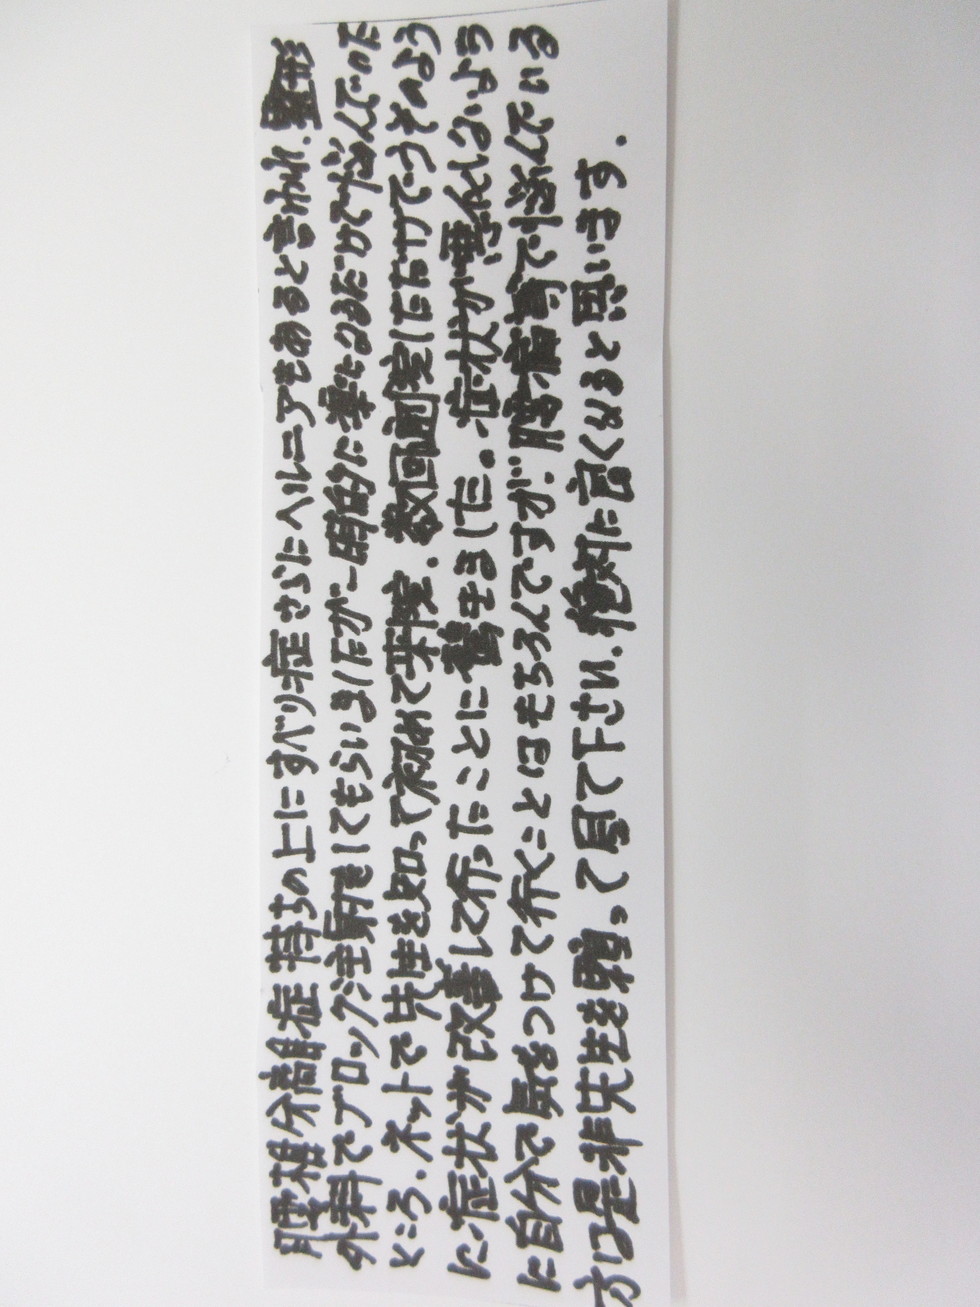 腰椎分離症持ちの上にすべり症さらにヘルニアもあると言われ、整形
外科でブロック注射をしてもらいましたが一時的に楽になるだけで悩んでいた
ところ、ネットで先生を知って初めて来院、数回通院しただけでうそのよう
に症状が改善して行ったことに驚きました。症状が悪化しないよう
に自分で気をつけて行くことはもちろんですが、腰痛等で悩んでいる
方は是非先生を頼って見て下さい、絶対に良くなると思います。